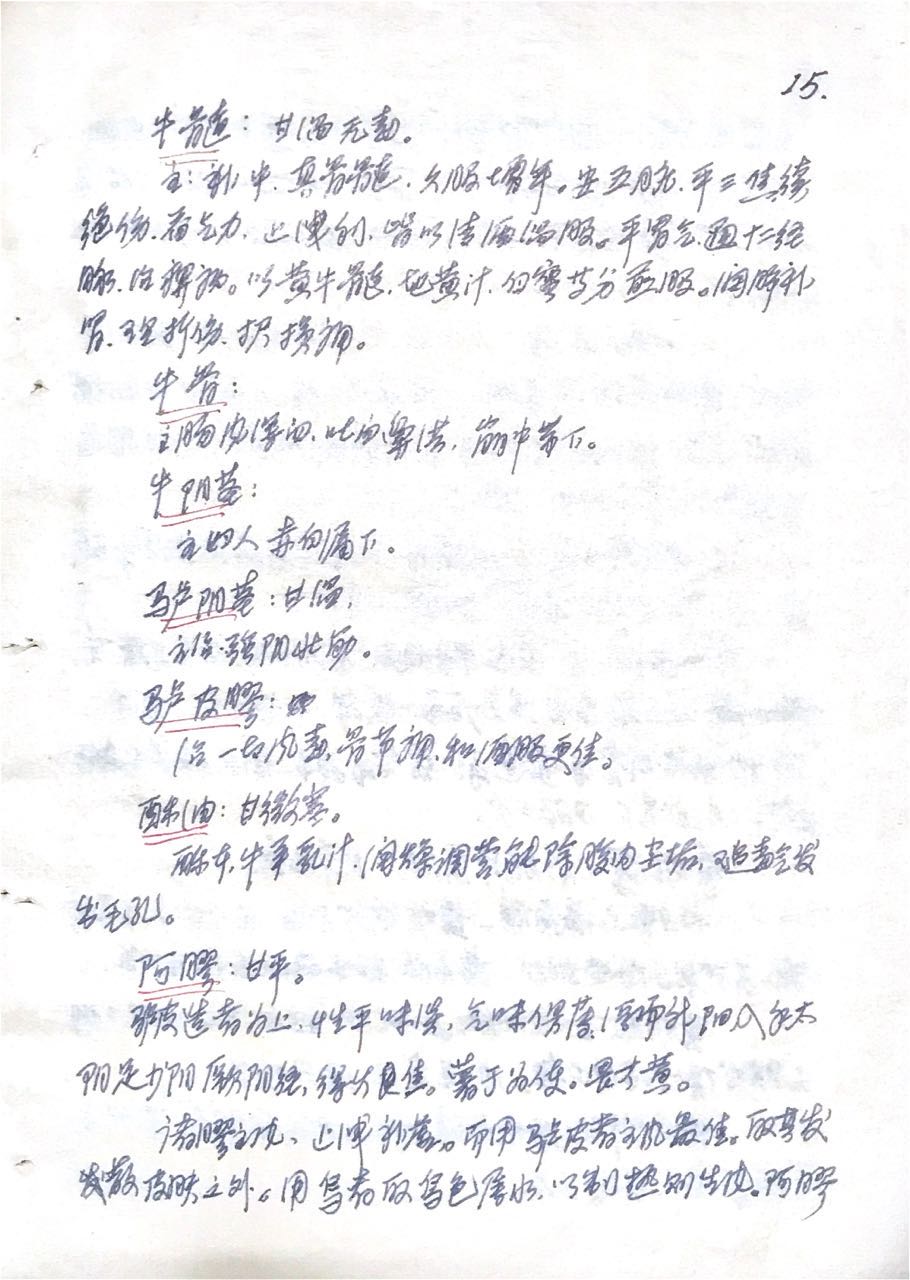 15.
牛髓：甘温无毒。
主：补中、填骨髓、久服增年。安五脏、平三焦、续
绝伤、益气力、止泄利、皆以清酒温服。平胃气、通十二经
脉、治瘦病。以黄牛髓、地黄汁、白蜜等分煎服。润肺补
肾、理折伤、损痛。
牛骨：
主肠风泻血、吐血鼻洪、崩中带下。
牛阴茎：
主妇人赤白漏下。
驴阴茎：甘温，
主治：强阴壮筋。
驴皮胶：
治一切风毒、骨节痛、和酒服更佳。
酥油：甘微寒。
酥本牛羊乳汁、润燥调营能除腹内尘垢，又追毒气发
出毛孔。
阿胶：甘平。
驴皮造者为上、性平味淡，气味俱薄，浮而升阳，入手太
阴足少阴厥阴经、得火良佳。薯于为使。畏大黄。
诸胶主风、止泄补虚。而用驴皮者主风最佳。取其发
散皮肤之外。用乌者取乌色属水、以制热则生风。阿胶